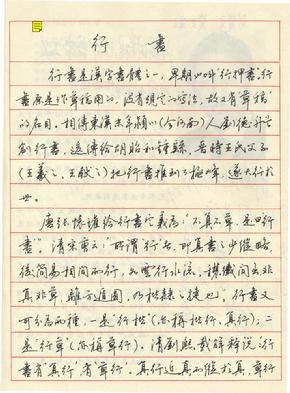 行書
行書是漢字書體之一，早期也叫“行押書”。行
書原是作草稿用的，没有規定的寫法，故又有草稿
的名目。相傳東漢末年潁川（今河南）人劉德升首
創行書，遂傳給胡昭和鍾繇，晋時王氏父子
（王羲之、王献之）把行書推到了極峰，遂大行於
世。
唐張懷瓘給行書定義爲：“不真不草，是曰行
書”。清宋曹云：“所謂行者，即真書之少催略
後簡易相間而行，如雲行水流，穠纖間出，非
真非草，離方遁圓，乃楷隸之捷也”。行書又
可分爲兩種，一是“行楷”（亦稱楷行、真行）；二
是“行草”（亦稱草行）。清劉熙載解釋説：行
書有“真行”，有“草行”，真行近真而縱於真，草行